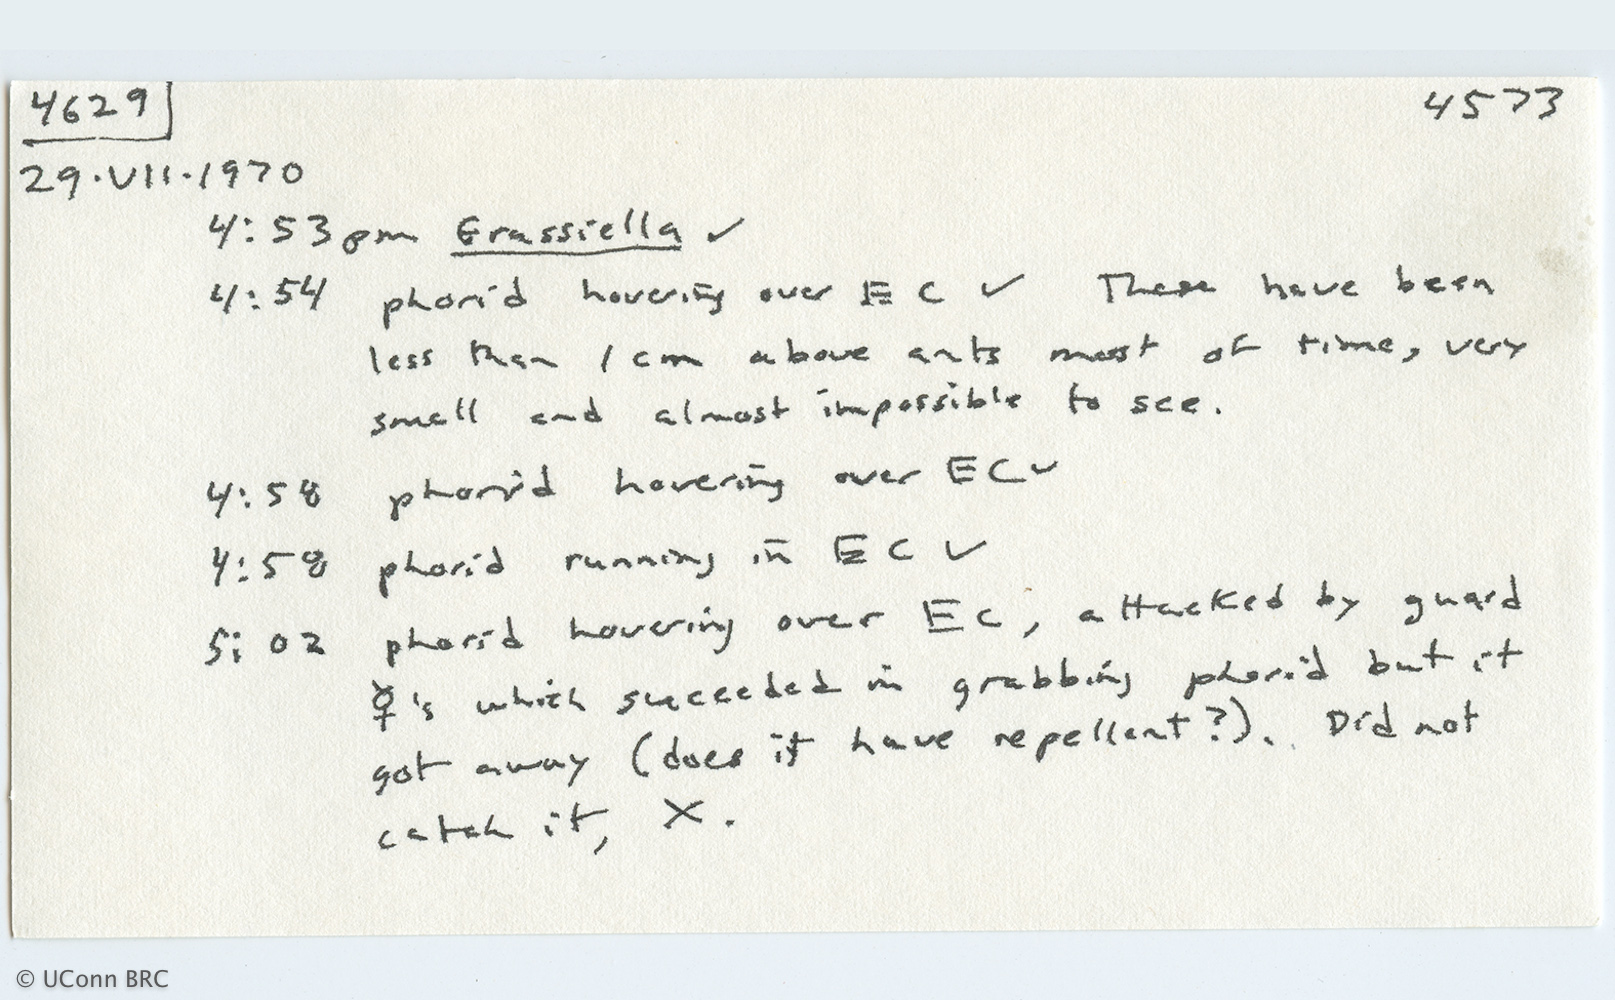 4629
4573
29.VII.1970
4:53pm Grassiella ✓
4:54 phorid hovering over EC ✓ These have been
less than 1 cm above ants most of time, very
small and almost impossible to see.
4:58 phorid hovering over EC ✓
4:58 phorid running in EC ✓
5:02 phorid hovering over EC, attacked by guard
☿'s which succeeded in grabbing phorid but it
got away (does it have repellent?). Did not
catch it, X.
© UConn BRC